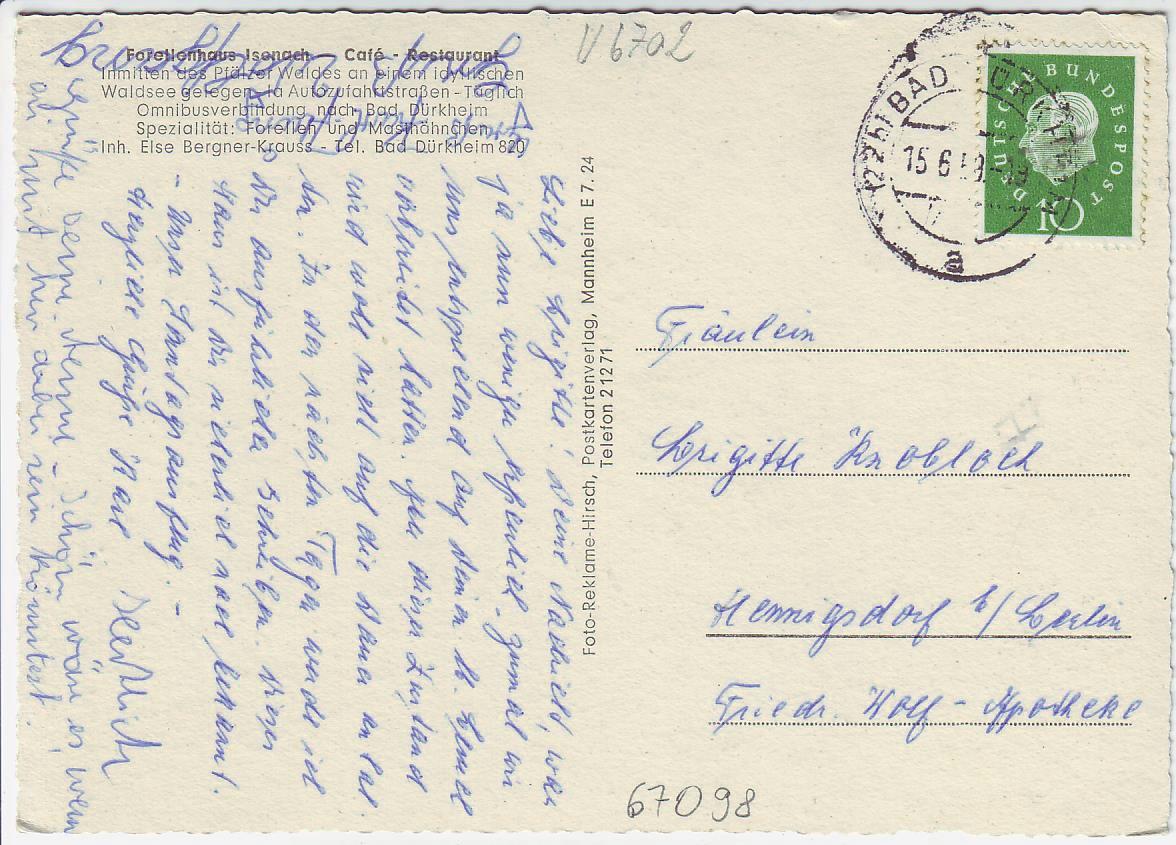 V 6702
Forellenhaus Isenach - Café - Restaurant
Inmitten des Pfälzer Waldes an einem idyllischen
Waldsee gelegen. Ia Autozufahrtstraßen - Täglich
Omnibusverbindung nach Bad Dürkheim
Spezialität: Forellen und Masthähnchen
Inh. Else Bergner-Krauss - Tel. Bad Dürkheim 820
Liebe Brigitte! Deine Nachricht, war
ja nun weniger erfreulich, zumal wir
uns entsprechend auf Deinen lb. Besuch
vorbereitet hatten. Aber dieser Zustand
wird wohl nicht auf die Dauer anhal-
ten. In den nächsten Tagen werde ich
Dir ausführlicher schreiben. Dieses
Haus ist Dir sicherlich noch bekannt.
- Unser Sonntagsausflug. -
Herzliche Grüße Karl
Schön wäre es wenn
Du mit hier oben sein könntest!
Foto-Reklame-Hirsch, Postkartenverlag, Mannheim E 7. 24
Telefon 2 12 71
(22b) BAD DÜRKHEIM
15.6.59
a
DEUTSCHE BUNDESPOST
10
Fräulein
Brigitte Knobloch
Hennigsdorf b/Berlin
Friedr. Wolf - Apotheke
67098